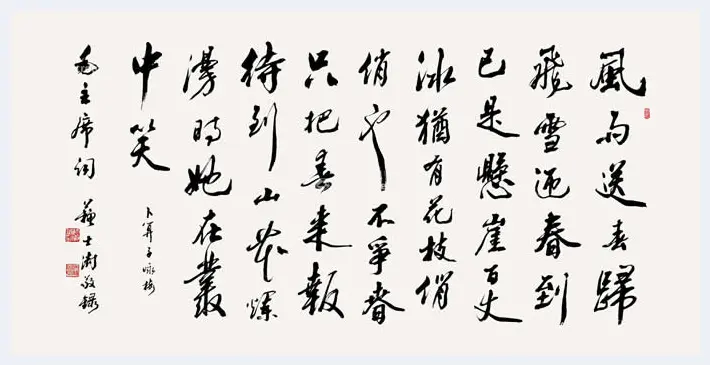 風雨送春歸
飛雪迎春到
已是懸崖百丈
冰猶有花枝俏
俏也不爭春
只把春來報
待到山花爛
漫時她在叢
中笑
卜算子咏梅
毛主席詞
蘇士澍敬錄